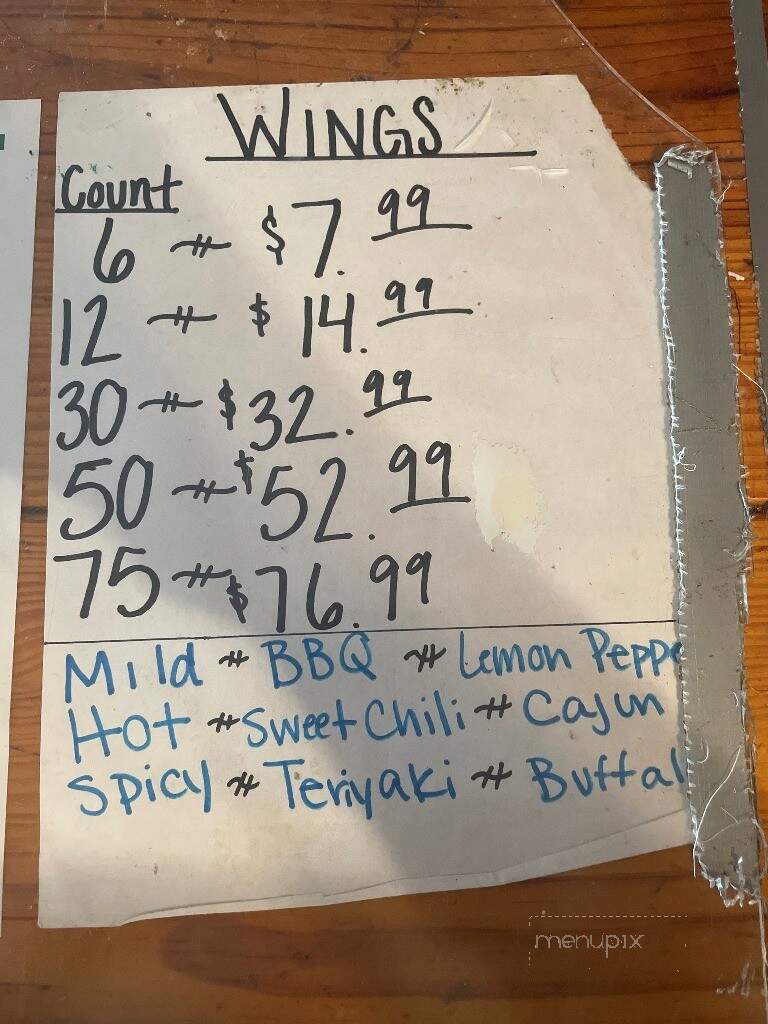 WINGS
Count
6 - $7.99
12 - $14.99
30 - $32.99
50 - $52.99
75 - $76.99
Mild - BBQ - Lemon Peppe
Hot - Sweet Chili - Cajun
Spicy - Teriyaki - Buffal
menupix